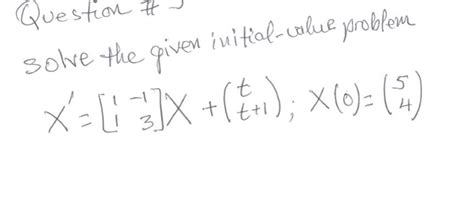 Question #
solve the given initial-value problem
X' = [1 -1
1 3] X + (t
t+1); X(0) = (5
4)